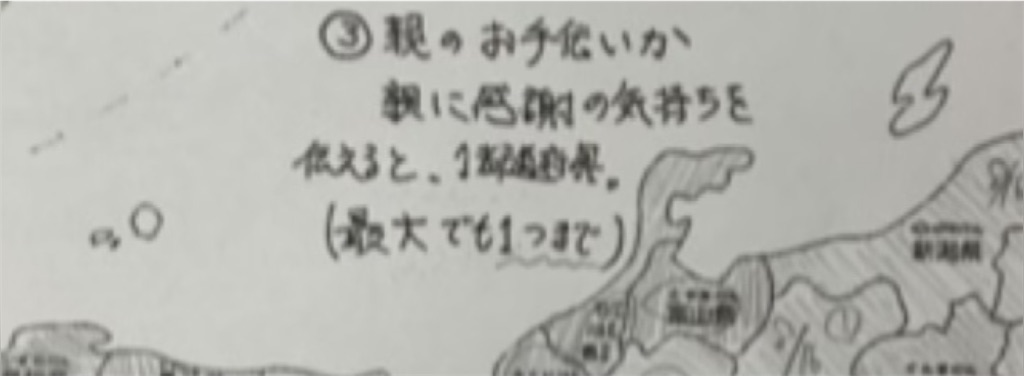 ③親のお手伝いか
親に感謝の気持ちを
伝えると、1都道府県。
(最大でも1つまで)
新潟県
富山県
①